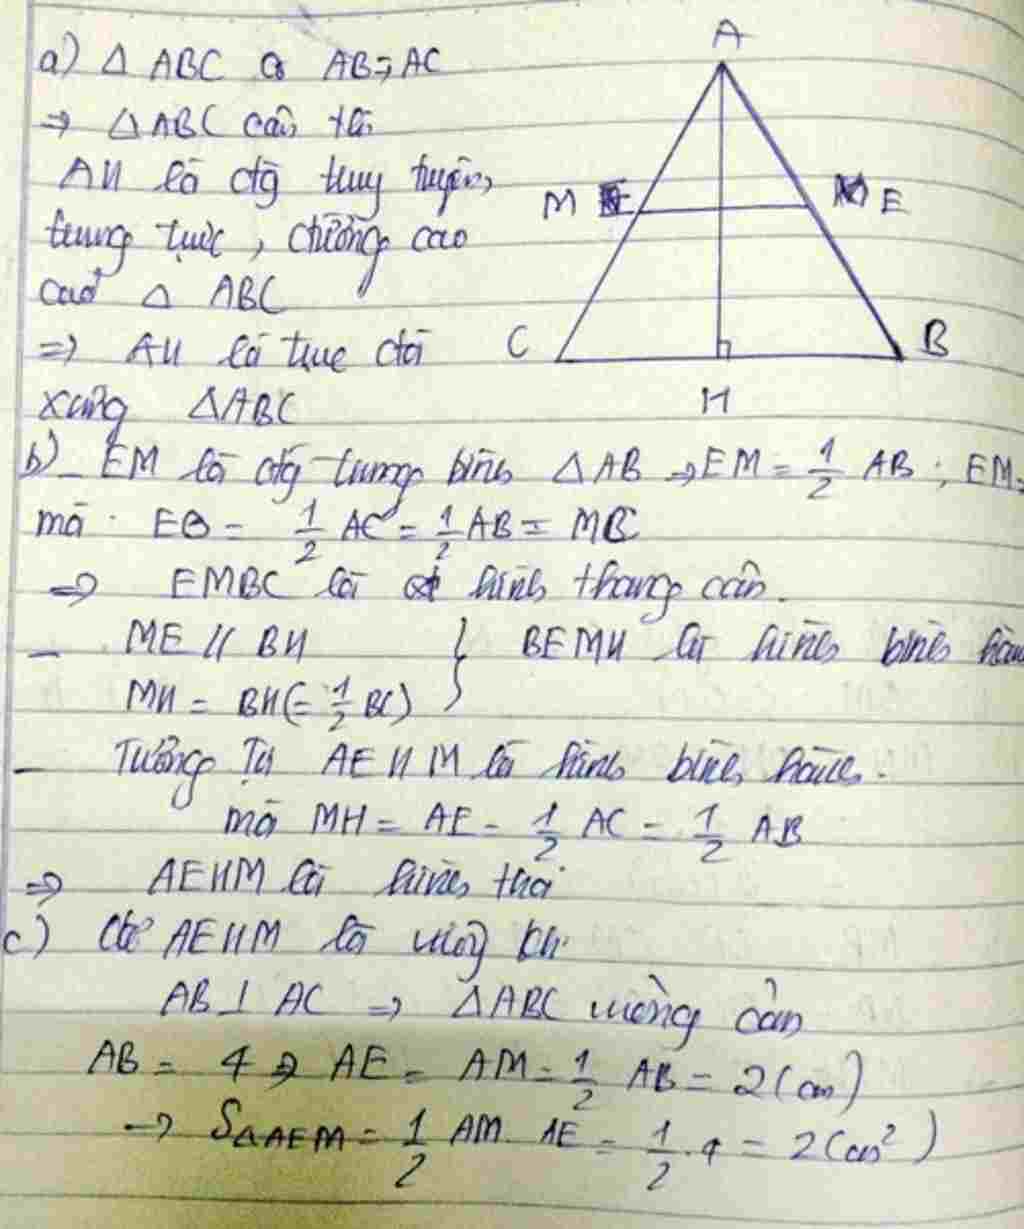 a) Δ ABC có AB = AC
⇒ ΔABC cân tại
AH là đg tuug tuyến,
trung trực, đường cao
của Δ ABC
⇒ AH là trục đối
xứng ΔABC
A
M E
C B
H
b) - EM là đg trung bình ΔAB ⇒ EM = 1/2 AB ; EM =
mà EB = 1/2 AC = 1/2 AB = MC
⇒ EMBC là hình thang cân.
- ME // BH } BEMH là hình bình hàn
MH = BH (= 1/2 BC)
- Tương Tự AEHM là hình bình hành.
mà MH = AE = 1/2 AC = 1/2 AB
⇒ AEHM là hình thoi
c) Để AEHM là vuông khi
AB ⊥ AC ⇒ ΔABC vuông cân
AB = 4 ⇒ AE = AM = 1/2 AB = 2 (cm)
→ SΔAEM = 1/2 AM. AE = 1/2 . 4 = 2 (cm²)